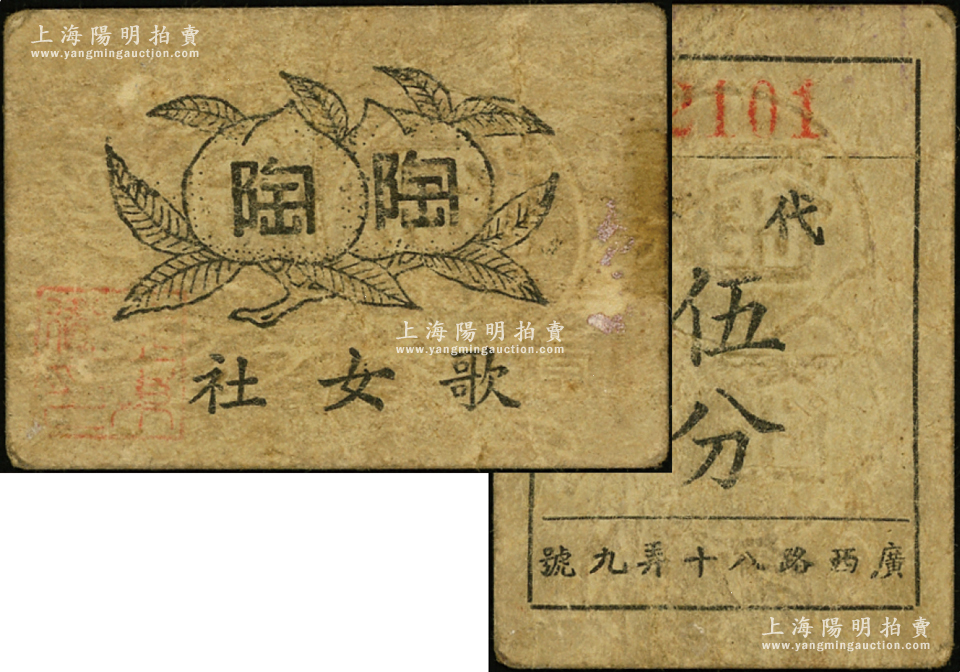 上海陽明拍賣
www.yangmingauction.com
陶陶
歌女社
上海陽明拍賣
www.yangmingauction.com
2101
代
伍分
廣西路八十弄九號
上海陽明拍賣
www.yangmingauction.com